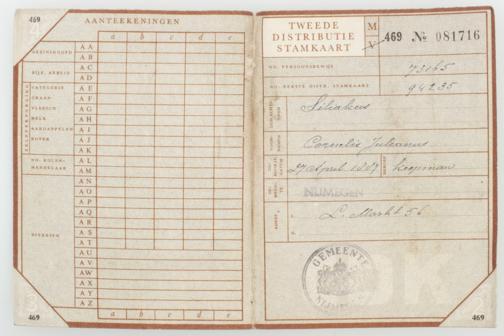 469
AANTEEKENINGEN
a b c d e
GEZINSHOOFD
AA
AB
BIJZ. ARBEID
AC
AD
ZELFVERZORGING
CATEGORIE
AE
GRAAN
AF
VLEESCH
AG
MELK
AH
AARDAPPELEN
AI
BOTER
AJ
AK
NO. KOLEN-
HANDELAAR
AL
AM
AN
AO
AP
AQ
AR
DIVERSEN
AS
AT
AU
AV
AW
AX
AY
AZ
a b c d e
469
469
TWEEDE
DISTRIBUTIE
STAMKAART
M
V
469 No 081716
NO. PERSOONSBEWIJS
NO. EERSTE DISTR. STAMKAART
94235
Cornelis Julianus
27 April 1887
koopman
NIJMEGEN
L. Markt 56
GEMEENTE
NIJMEGEN
469